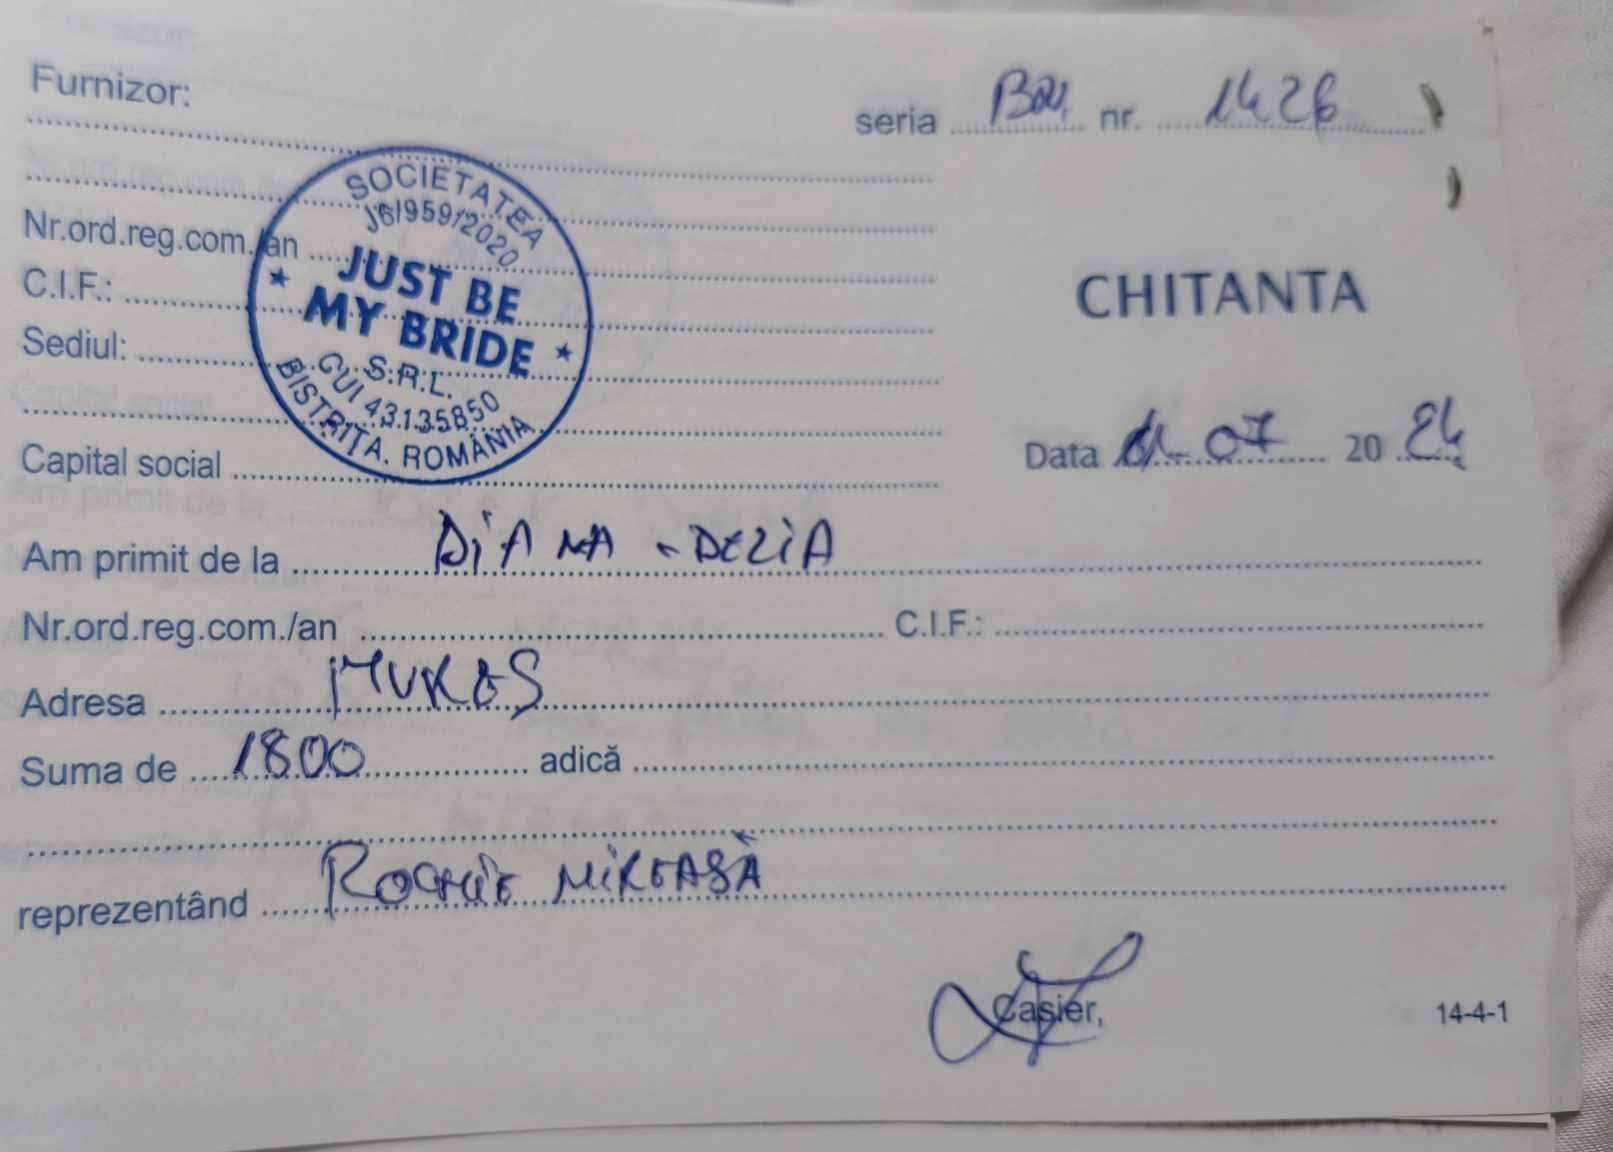 Furnizor:
seria nr. 1426
SOCIETATEA
J6/959/2020
Nr.ord.reg.com./an
JUST BE
MY BRIDE
S.R.L.
CUI 43135850
BISTRIȚA. ROMÂNIA
C.I.F.:
CHITANTA
Sediul:
Data 07 20 24
Capital social
Am primit de la DiANA - DELIA
Nr.ord.reg.com./an C.I.F.:
Adresa MUREȘ
Suma de 1800 adică
reprezentând ROCHIE MIREASĂ
Casier,
14-4-1